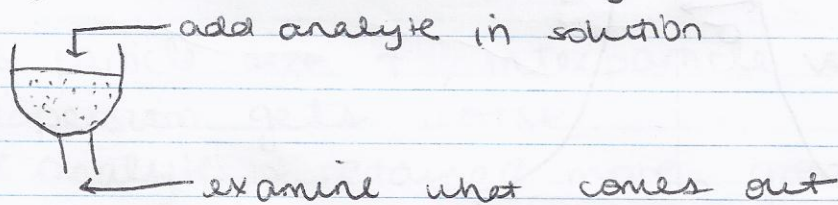 add analyte in solution
examine what comes out